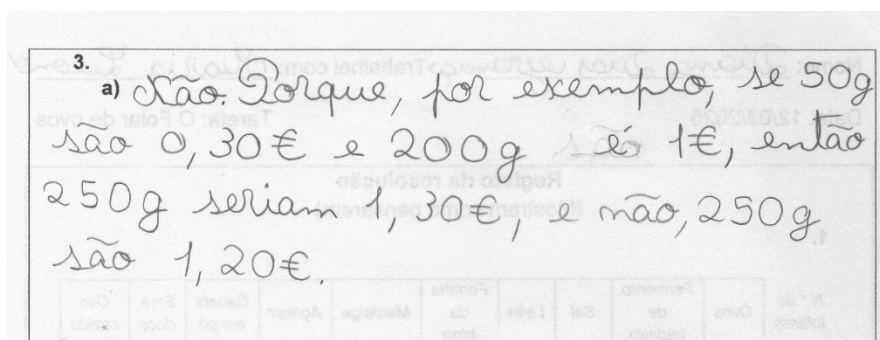 3.
a) Não. Porque, por exemplo, se 50g
são 0,30€ e 200g é 1€, então
250g seriam 1,30€, e não, 250g
são 1,20€.